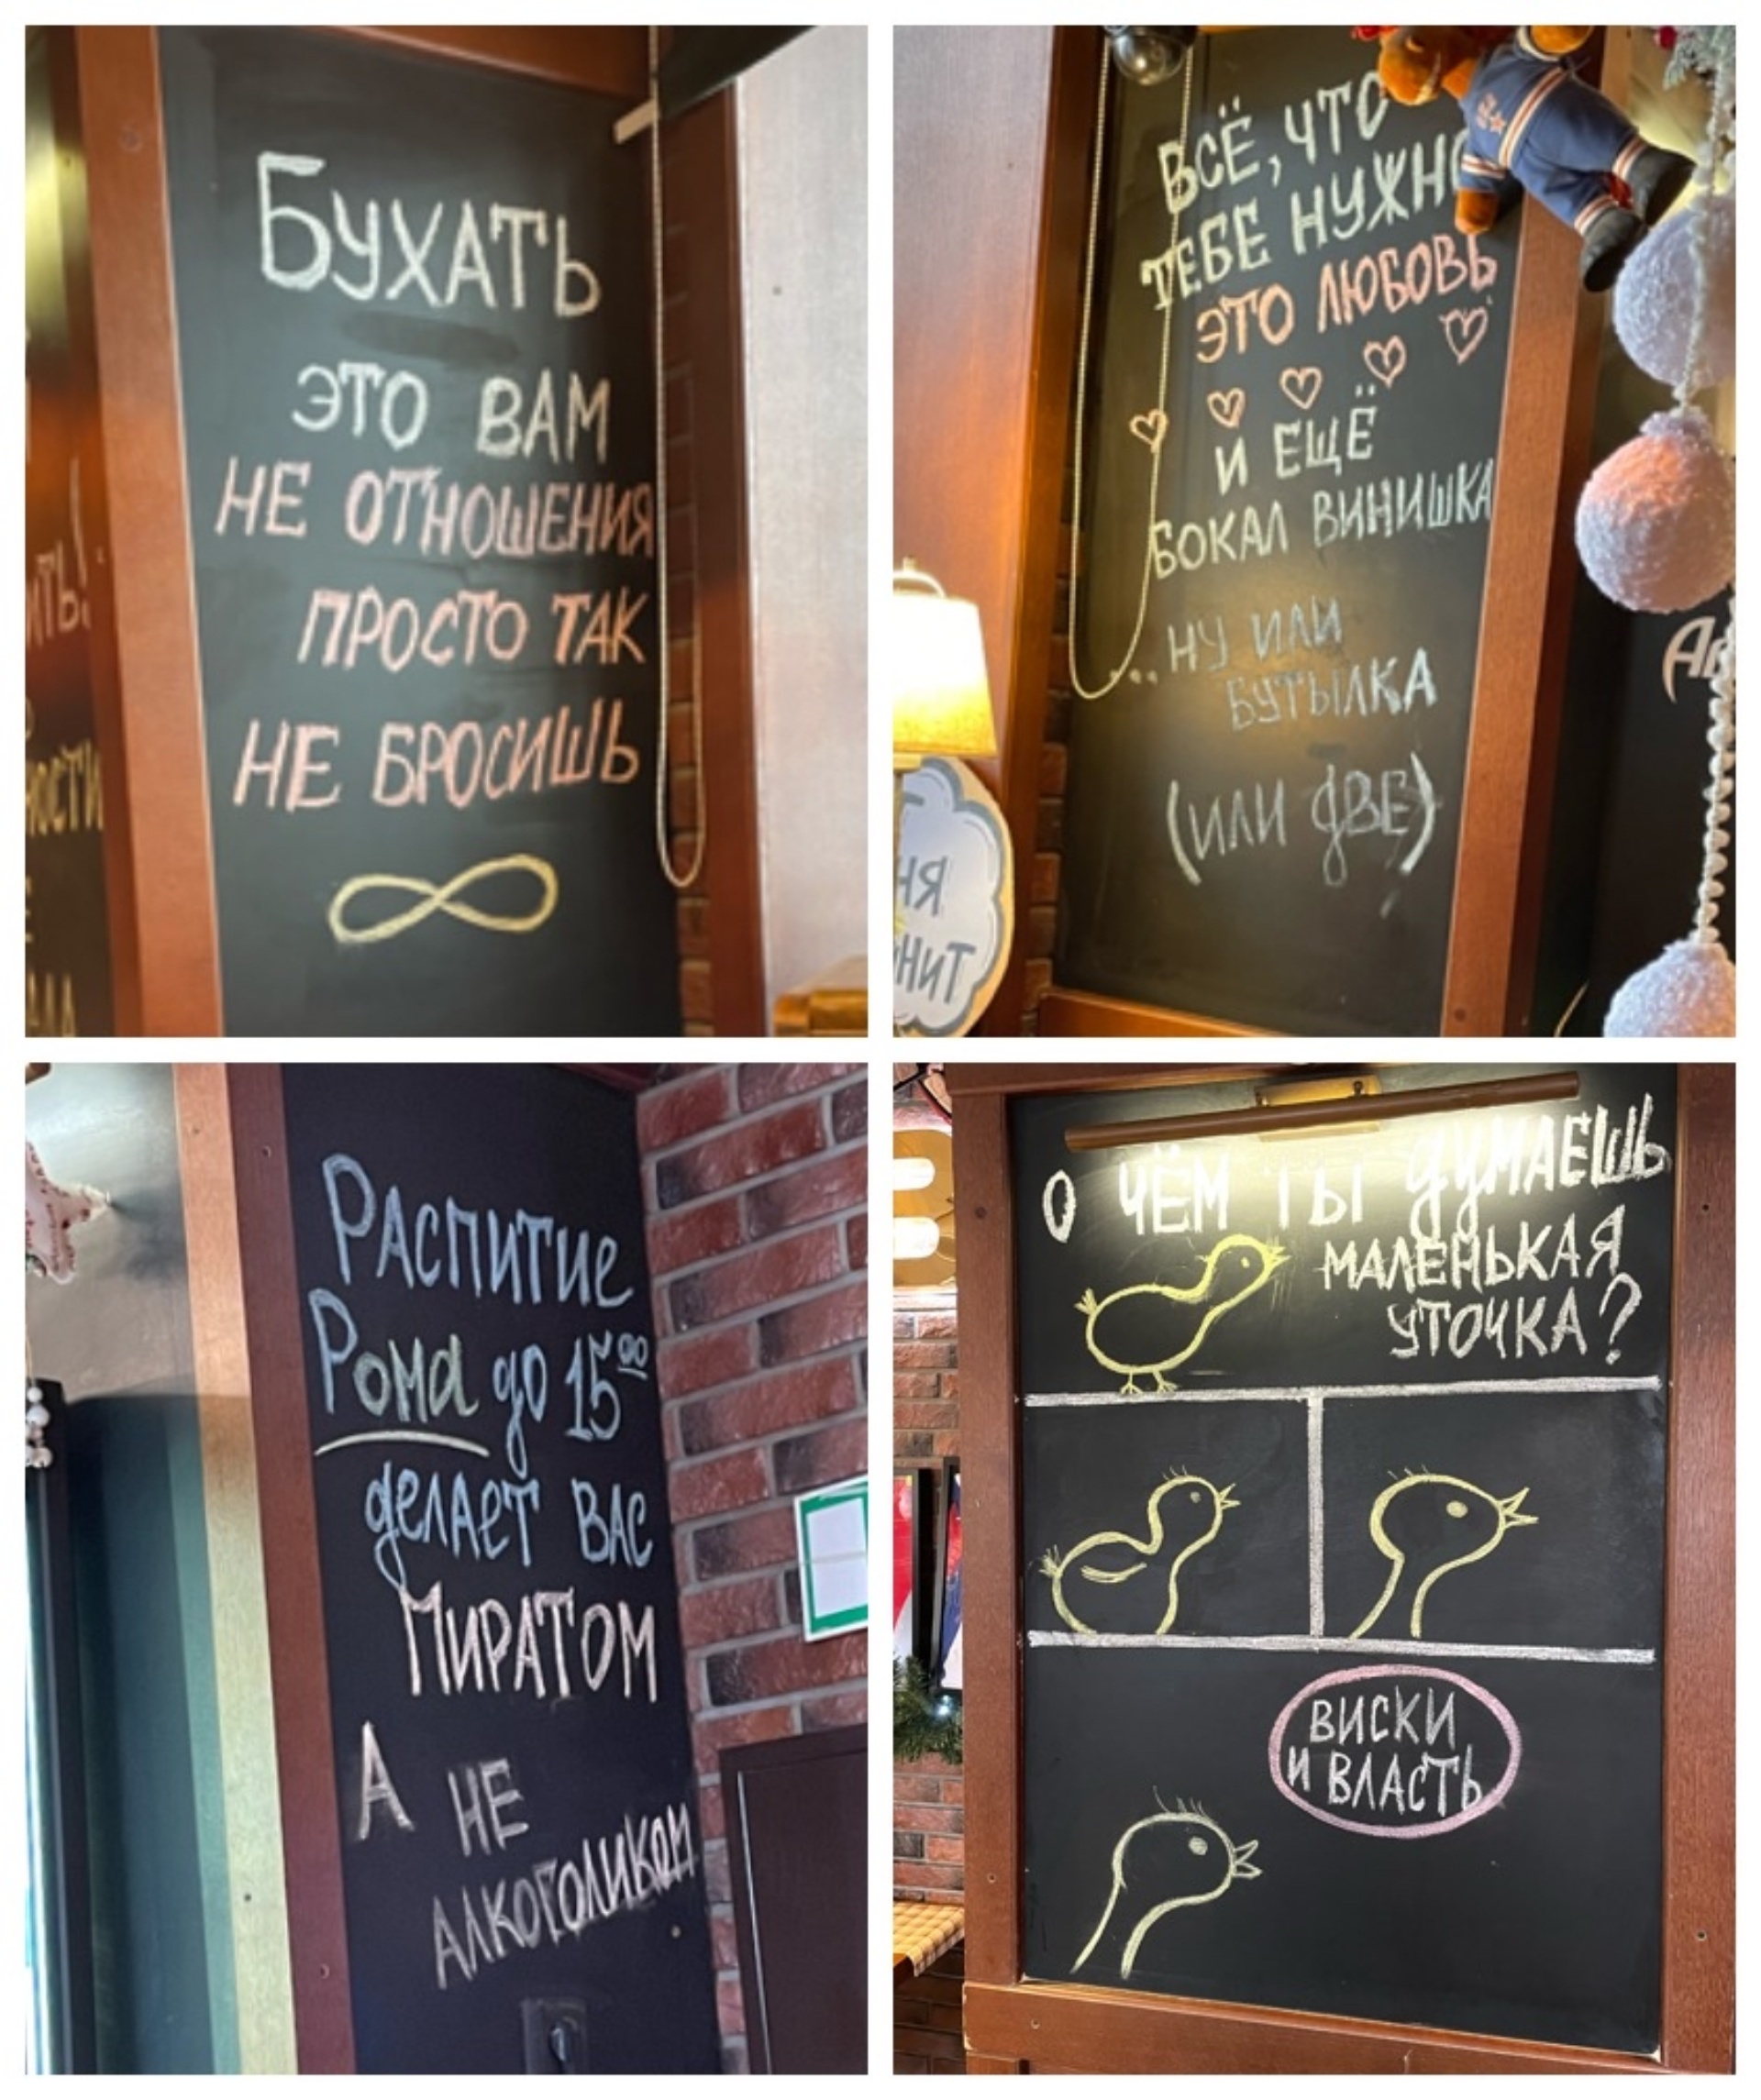 Бухать
это вам
не отношения
просто так
не бросишь
Всё, что
тебе нужно
это любовь
и ещё
бокал винишка
...ну или
бутылка
(или две)
Распитие
Рома до 15⁰⁰
делает вас
Пиратом
А не
алкоголиком
О чём ты думаешь
маленькая
уточка?
виски
и власть